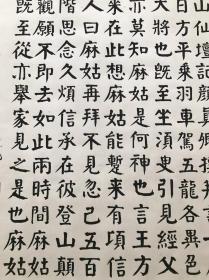 山仙壇記
日方平乘羽車駕五龍各異色
大將也既至坐須臾引見經父
亦莫知麻姑是何神也言王方
來在此想麻姑能暫來有頃信
人曰麻姑再拜不見忽已五百
階思念久煩信承在彼登山顛
觀願不即去如此兩時間麻姑
既至從亦舉家見之是也麻姑